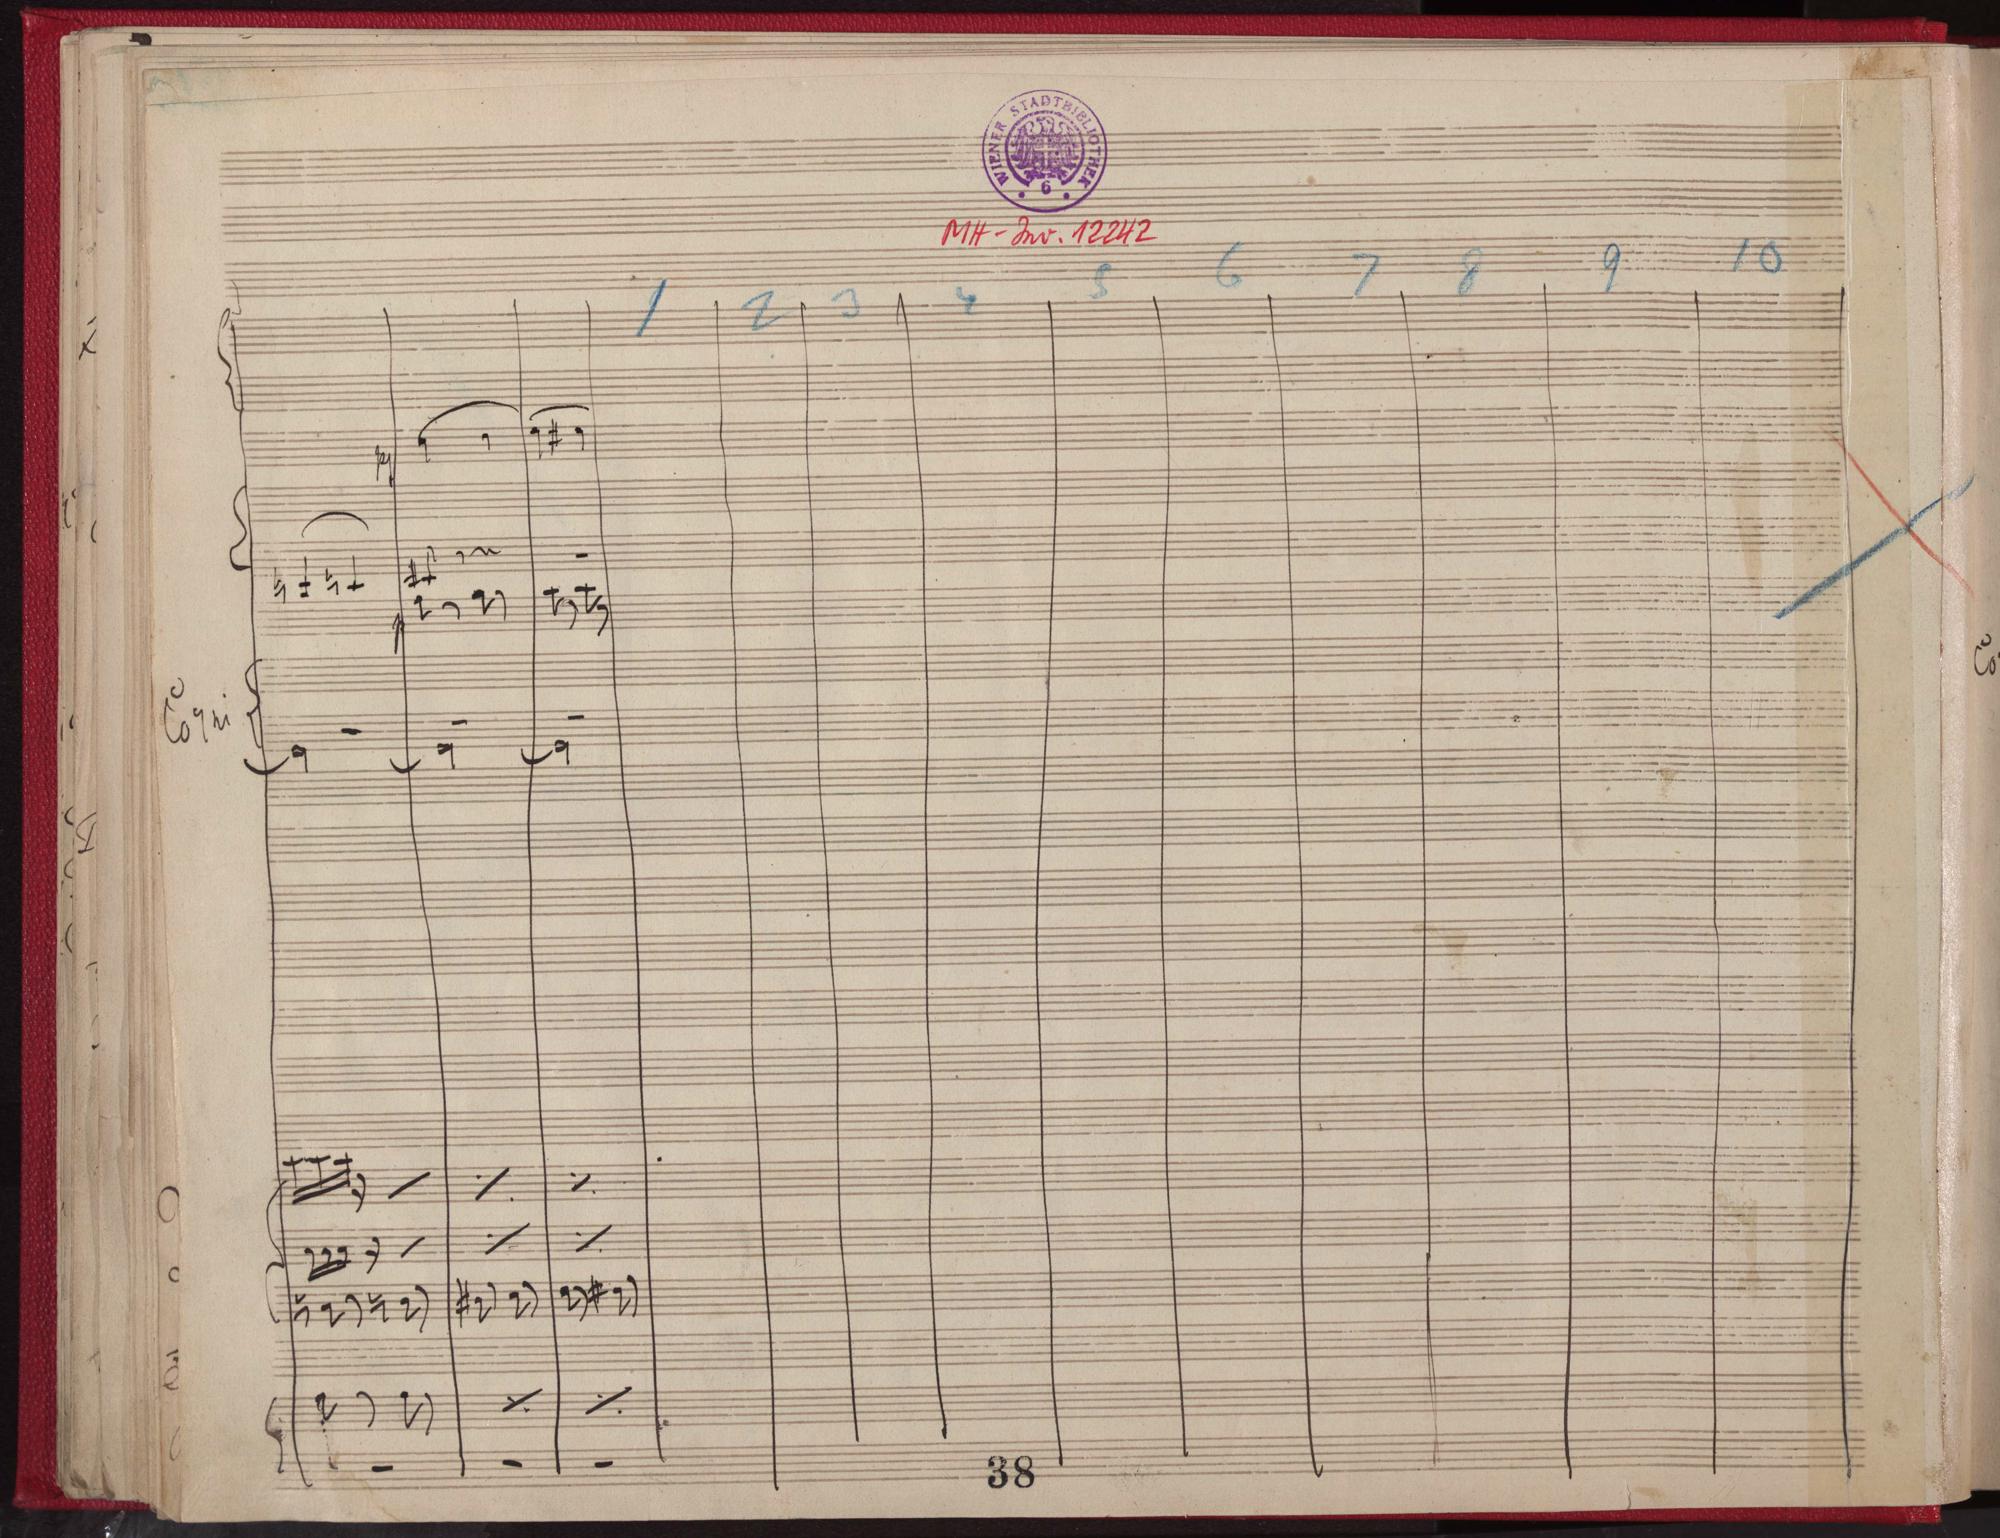 WIENER STADTBIBLIOTHEK
6
MH-Inv. 12242
1 2 3 4 5 6 7 8 9 10
p
p
38